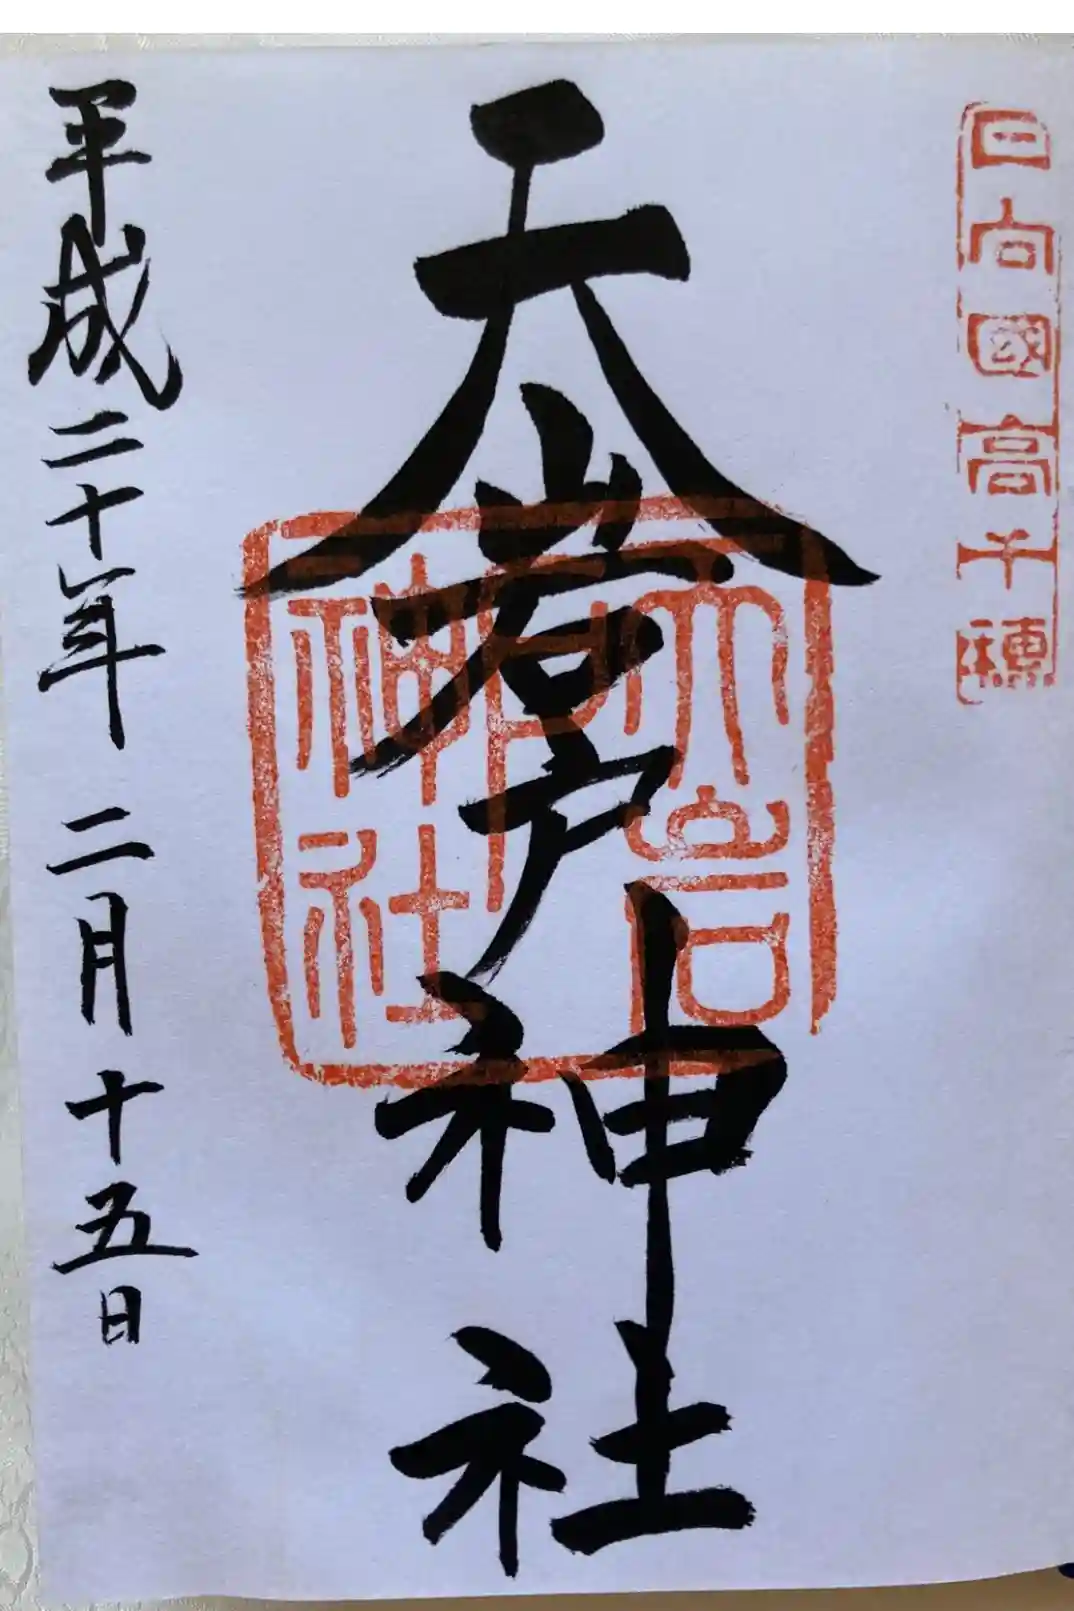 日向國高千穂
天岩戸神社
天岩戸神社
平成二十年 二月十五日